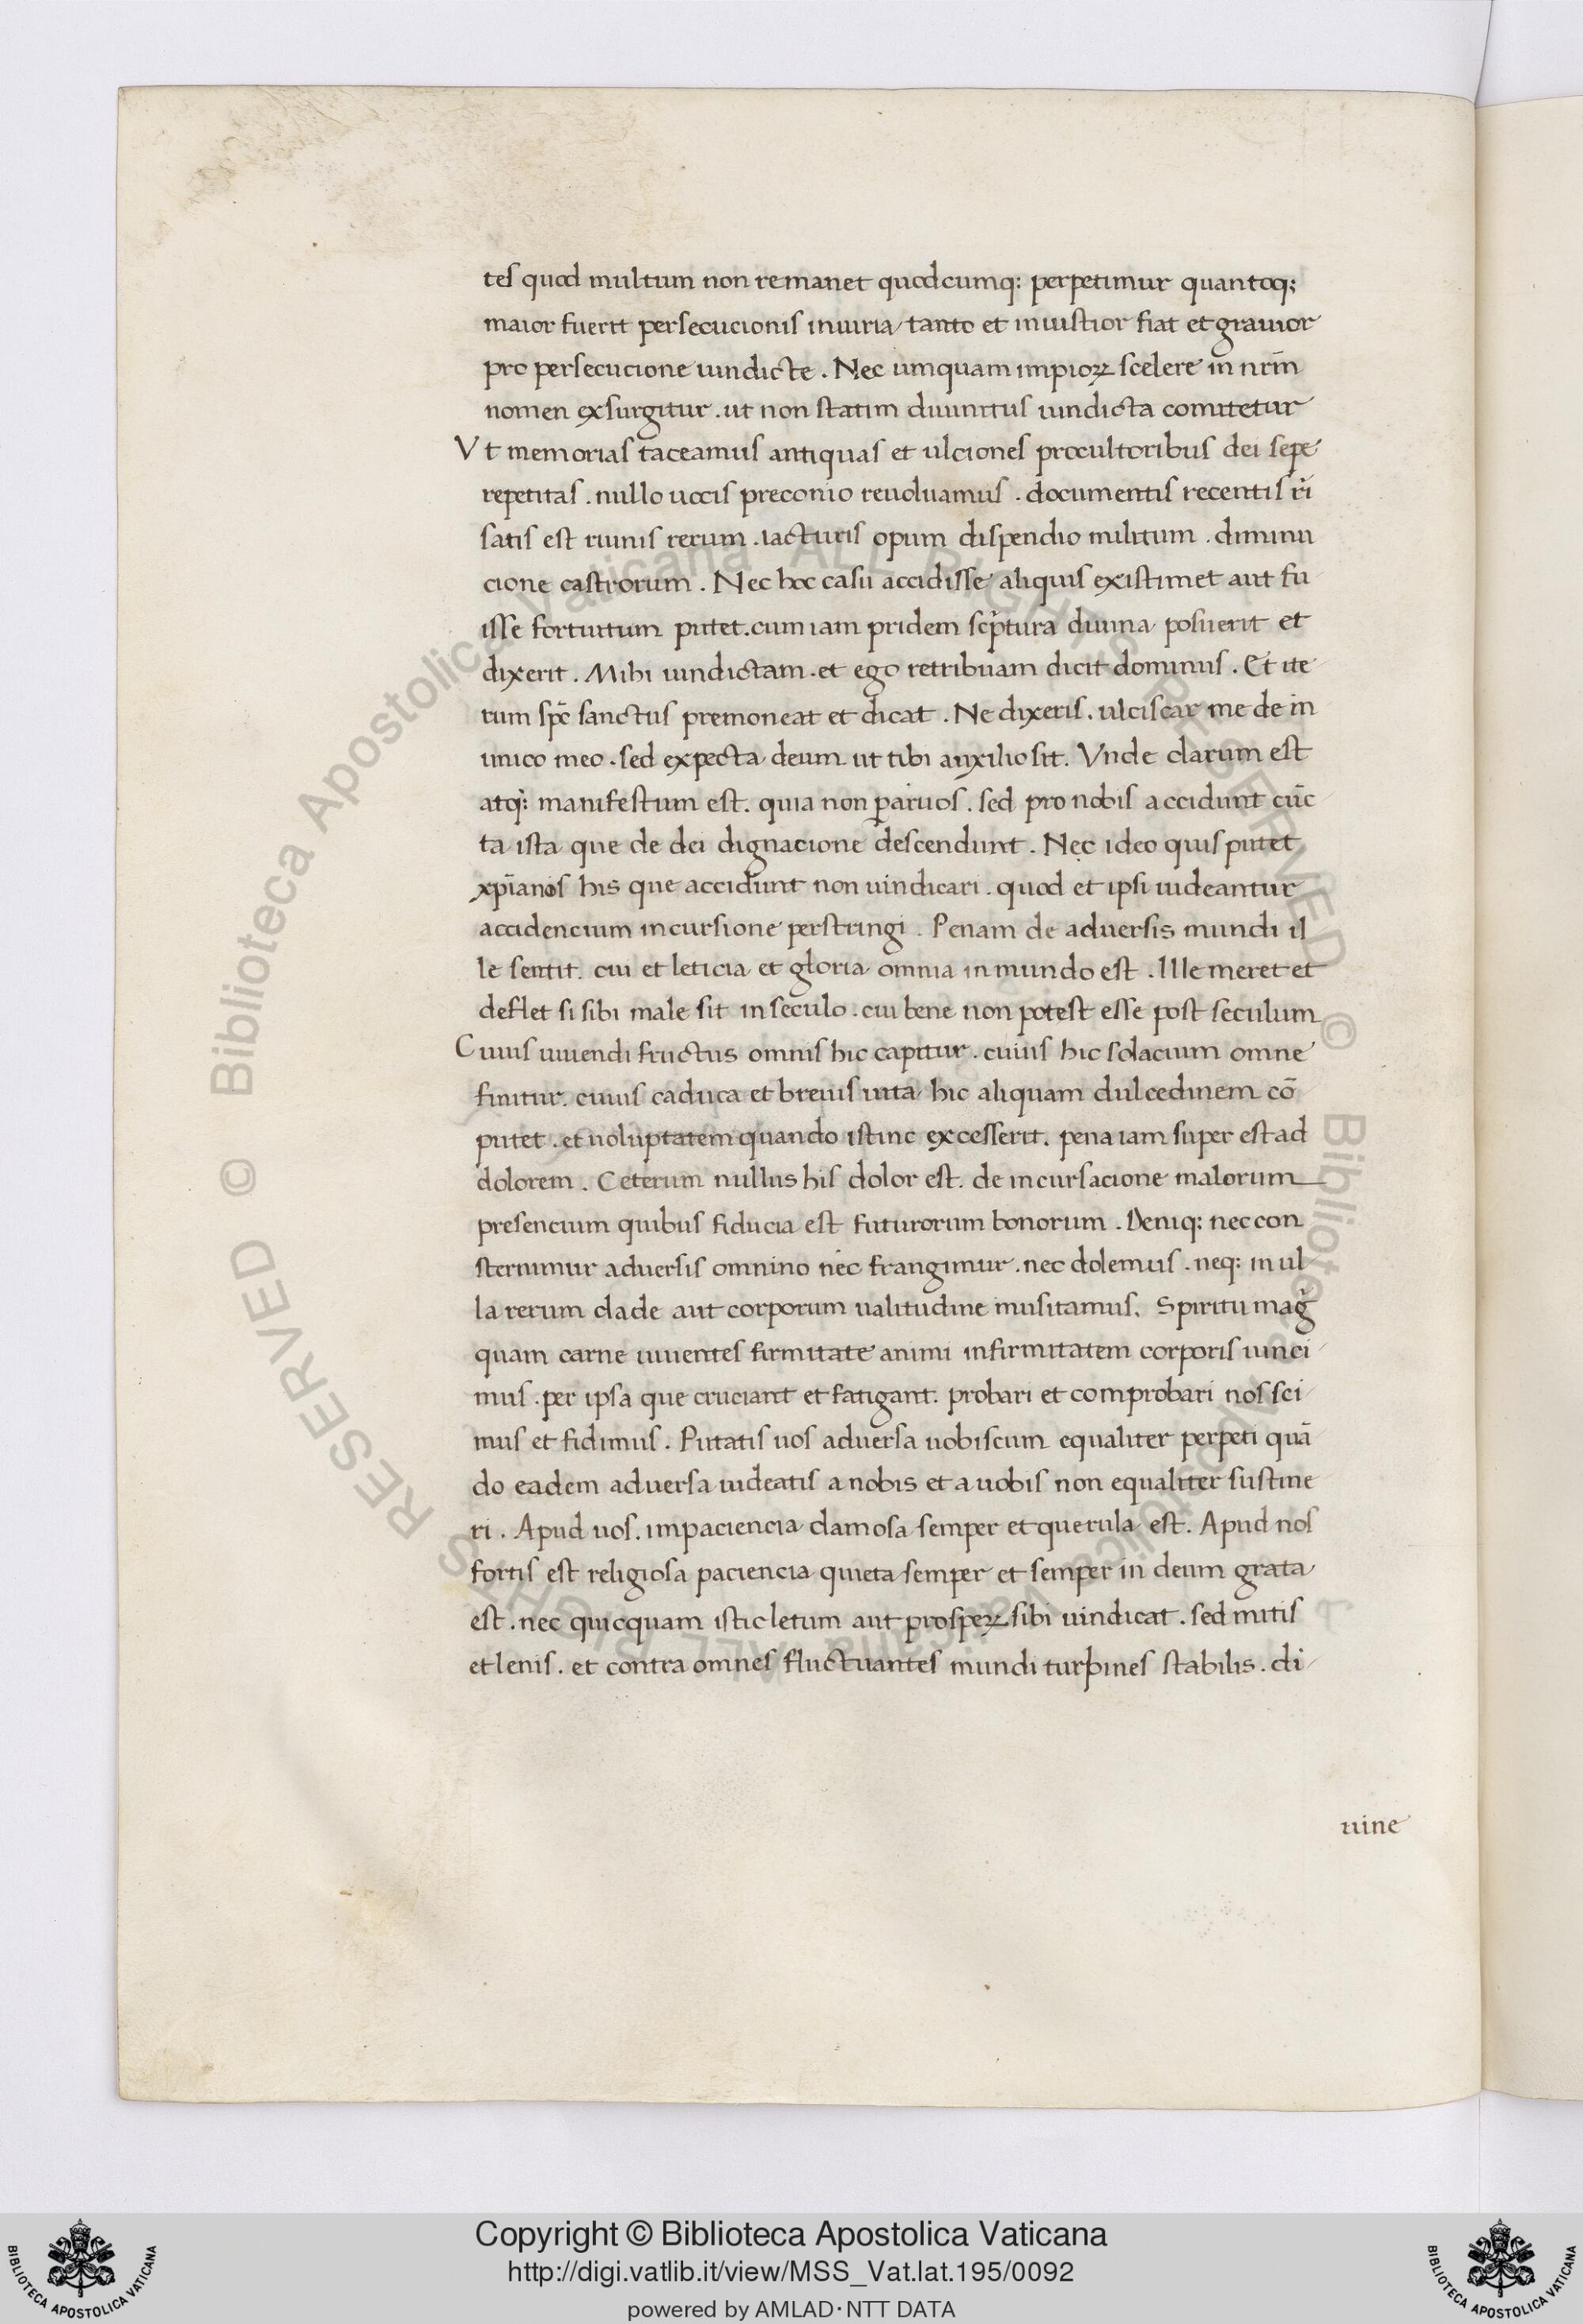 tes quod multum non remanet quodcumq: perpetimur quantoq;
maior fuerit persecucionis iniuria tanto et iniustior fiat et grauior
pro persecucione uindicte . Nec umquam impioꝝ scelere in nrm̄
nomen exsurgitur . ut non statim diuinitus uindicta comitetur
Vt memorias taceamus antiquas et ulciones procultoribus dei sepe
repetitas . nullo uocis preconio reuoluamus . documentis recentis ri
satis est ruinis rerum . iacturis opum dispendio militum . diminu
cione castrorum . Nec hoc casu accidisse aliquis existimet aut fu
isse fortuitum putet . cum iam pridem scp̄tura diuina posuerit et
dixerit . Mihi uindictam . et ego retribuam dicit dominus . Et ite
rum spc̄ sanctus premoneat et dicat . Ne dixeris . ulciscar me de in
imico meo . sed expecta deum ut tibi auxilio sit . Vnde clarum est
atq: manifestum est . quia non ꝑ aruos . sed pro nobis accidunt cūc
ta ista que de dei dignacione descendunt . Nec ideo quis putet
xpīanos his que accidunt non uindicari . quod et ipsi uideantur
accidencium incursione perstringi . Penam de aduersis mundi il
le sentit . cui et leticia et gloria omnia in mundo est . Ille meret et
deflet si sibi male sit in seculo . cui bene non potest esse post seculum
Cuius uiuendi fructus omnis hic capitur . cuius hic solacium omne
finitur . cuius caduca et breuis uita hic aliquam dulcedinem cō
putet . et uoluptatem quando istinc excesserit . pena iam super est ad
dolorem . Ceterum nullus his dolor est . de incursacione malorum
presencium quibus fiducia est futurorum bonorum . Deniq: nec con
sternimur aduersis omnino nec frangimur . nec dolemus . neq: in ul
la rerum clade aut corporum ualitudine musitamus . Spiritu mag̓
quam carne uiuentes firmitate animi infirmitatem corporis uinci
mus . per ipsa que cruciant et fatigant . probari et comprobari nos sci
mus et fidimus . Putatis uos aduersa uobiscum equaliter perpeti quā
do eadem aduersa uideatis a nobis et a uobis non equaliter sustine
ri . Apud uos . impaciencia clamosa semper et querula est . Apud nos
fortis est religiosa paciencia quieta semper et semper in deum grata
est . nec quicquam istic letum aut prospeꝝ sibi uindicat . sed mitis
et lenis . et contra omnes fluctuantes mundi turbines stabilis . di
uine
© Biblioteca Apostolica Vaticana ALL RIGHTS RESERVED © Biblioteca Apostolica Vaticana ALL RIGHTS RESERVED
Copyright © Biblioteca Apostolica Vaticana
http://digi.vatlib.it/view/MSS_Vat.lat.195/0092
powered by AMLAD·NTT DATA
BIBLIOTECA APOSTOLICA VATICANA
BIBLIOTECA APOSTOLICA VATICANA